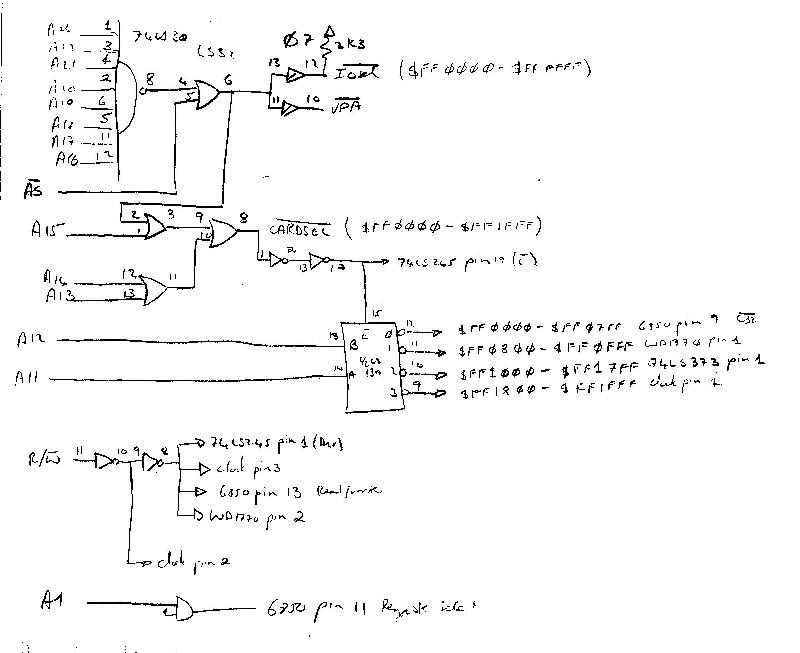 74LS30
LS32
Ø7
2K3
A23 1
A22 3
A21 4
A20 2
A19 6
A18 5
A17 11
A16 12
8 4 5 6
13 12 IOSEL ($FF0000-$FFFFFF)
11 10 VPA
AS
A15 2 1 3 9 10 8 CARDSEL ($FF0000-$FF1FFF)
1 2 13 12 74LS245 pin 19 (E)
A14 12
A13 13 11
15
A12 13 B E 0 12 $FF0000-$FF07FF 6850 pin 9 CS2
1 11 $FF0800-$FF0FFF WD1770 pin 1
A11 14 A 1/2 LS 139 2 10 $FF1000-$FF17FF 74LS373 pin 1
3 9 $FF1800-$FF1FFF clock pin 1
R/W 11 10 9 8 74LS245 pin 1 (DIR)
clock pin 3
6850 pin 13 Read/write
WD1770 pin 2
clock pin 2
A1 6850 pin 11 Register select